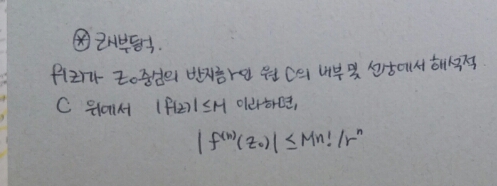 ⊛ 코시부등식.
f(z)가 z₀중심의 반지름 r인 원 C의 내부 및 선상에서 해석적
C 위에서 |f(z)| ≤ M 이라하면,
|f⁽ⁿ⁾(z₀)| ≤ Mn!/rⁿ